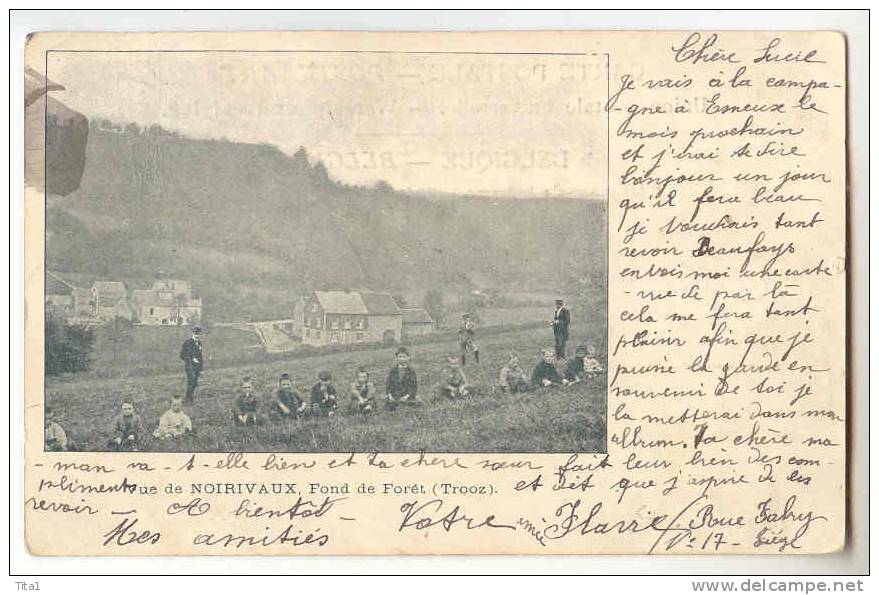 Chère Lucie
Je vais à la campa-
-gne à Esneux le
mois prochain
et j'irai te dire
bonjour un jour
qu'il fera beau
je voudrais tant
revoir Beaufays
envois moi une carte
-vue de par là
cela me fera tant
plaisir afin que je
puisse la garde en
souvenir de toi je
la metterai dans mon
album. Ta chère ma
-man va-t-elle bien et ta chère sœur fait leur bien des com-
pliments et dit que j'aspire de les
Vue de NOIRIVAUX, Fond de Forêt (Trooz).
revoir - A bientôt - Votre amie Flavie / Rue Fabry
Mes amitiés
N° 17 - Liége
Tita1
www.delcampe.net